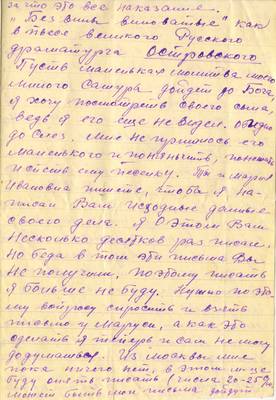 за что это все наказание.
"Без вины виноватые" как
в пьесе великого Русского
драматурга Островского
Пусть маленькая молитва моего
милого Сашура дойдет до Бога.
Я хочу посмотреть своего сына,
ведь я его еще не видел. обидно
до слез. Мне не пришлось его
маленького и понянчить, поносить
и спеть ему песенку. Ты и Мария
Ивановна пишете, чтобы я на-
писал Вам исходные данные
своего дела. Я о этом Вам
несколько десятков раз писал.
Но беда в том эти письма Вы
не получили, поэтому писать
я больше не буду. Нужно по это-
му вопросу спросить и взять
письмо у Маруси, а как это
сделать я теперь и сам не могу
додуматься. Из Москвы мне
пока ничего нет, в этом м-це
буду опять писать (числа 20-25
может быть мои письма дойдут